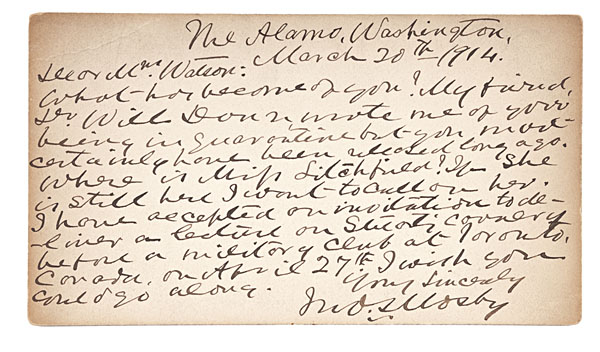 The Alamo, Washington,
March 20th 1914.
Dear Mrs. Watson:
What has become of you? My friend,
Dr. Will Dunn wrote me of your
being in quarantine but you most
certainly have been released long ago.
Where is Miss Litchfield? If she
is still here I want to call on her.
I have accepted an invitation to de-
-liver a lecture on Stuart's Cavalry
before a military club at Toronto,
Canada, on April 27th I wish you
could go along.
Yours Sincerely
Jno. S. Mosby